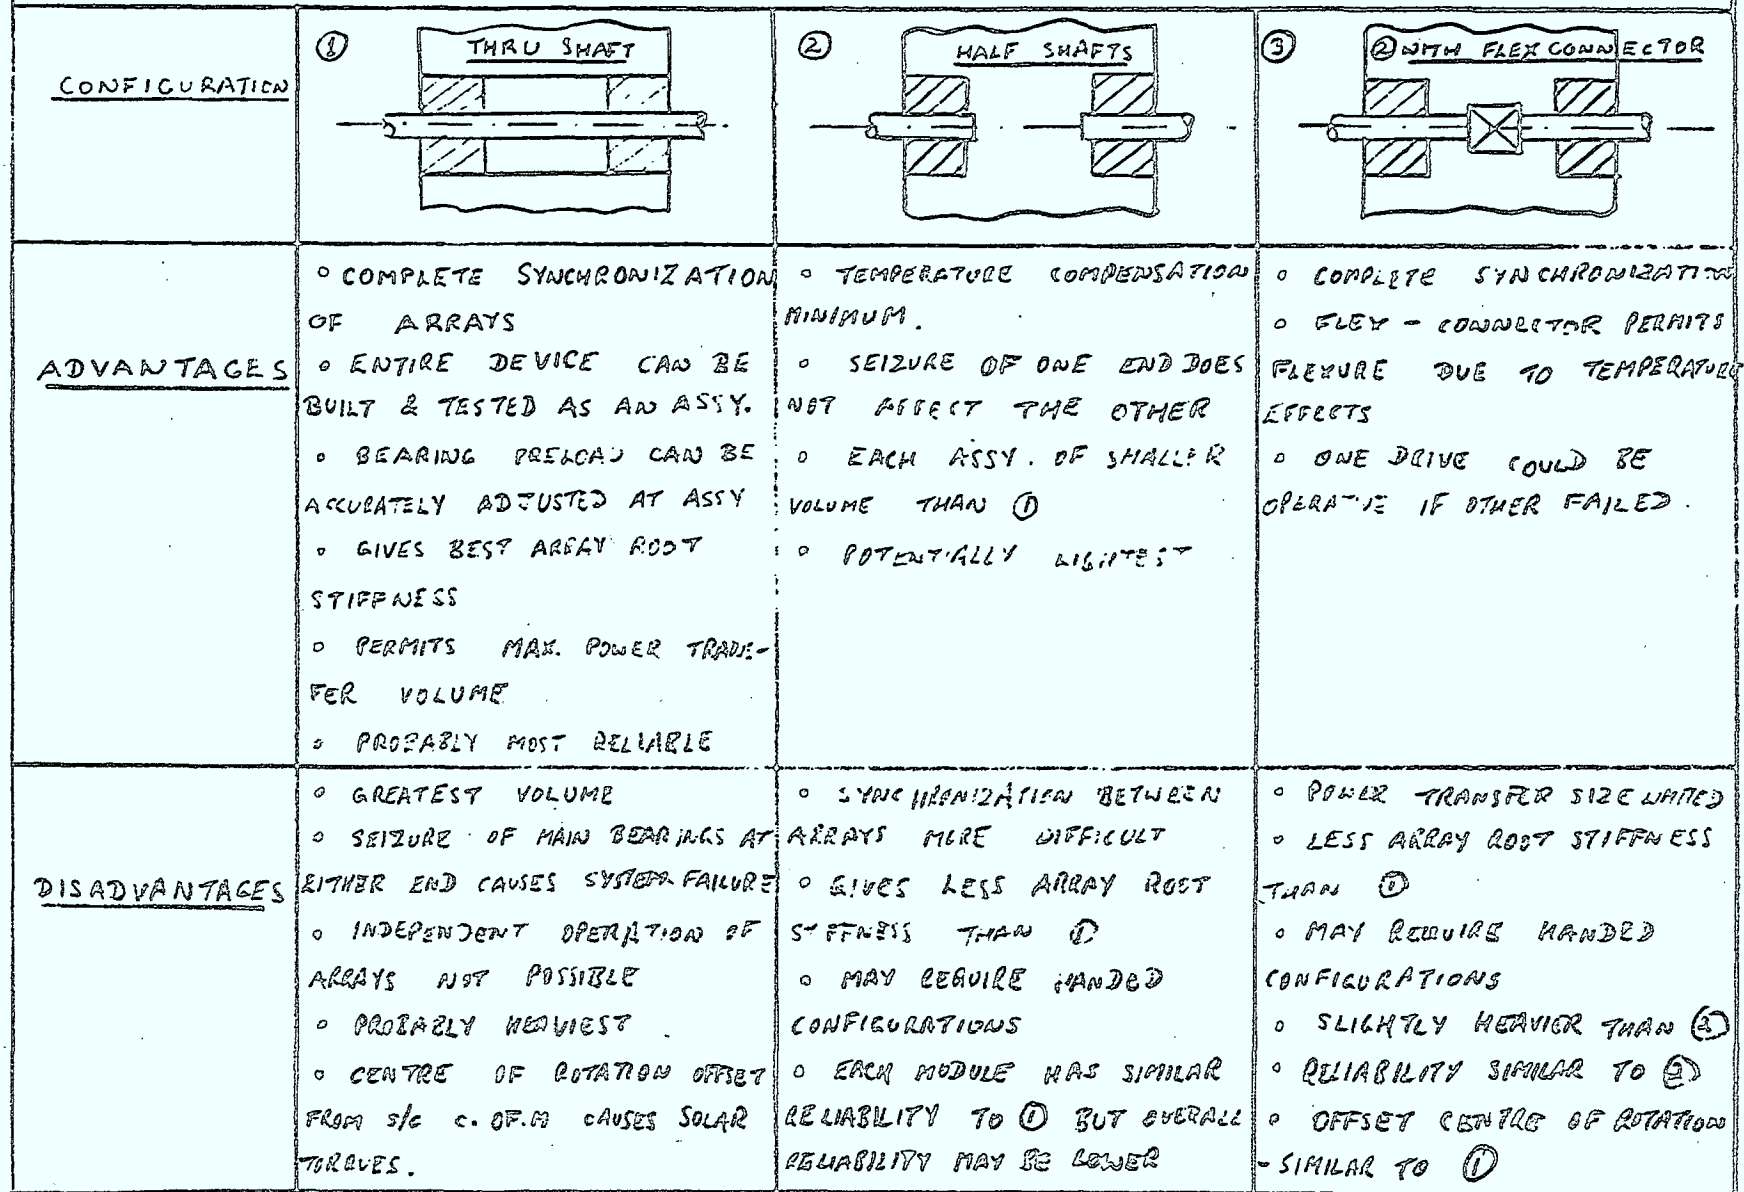 CONFIGURATION
① THRU SHAFT
② HALF SHAFTS
③ ② WITH FLEX CONNECTOR
ADVANTAGES
° COMPLETE SYNCHRONIZATION
OF ARRAYS
° ENTIRE DEVICE CAN BE
BUILT & TESTED AS AN ASSY.
° BEARING PRELOAD CAN BE
ACCURATELY ADJUSTED AT ASSY
° GIVES BEST ARRAY ROOT
STIFFNESS
° PERMITS MAX. POWER TRANS-
FER VOLUME
° PROBABLY MOST RELIABLE
° TEMPERATURE COMPENSATION
MINIMUM.
° SEIZURE OF ONE END DOES
NOT AFFECT THE OTHER
° EACH ASSY. OF SMALLER
VOLUME THAN ①
° POTENTIALLY LIGHTEST
° COMPLETE SYNCHRONIZATION
° FLEX - CONNECTOR PERMITS
FLEXURE DUE TO TEMPERATURE
EFFECTS
° ONE DRIVE COULD BE
OPERATIVE IF OTHER FAILED.
DISADVANTAGES
° GREATEST VOLUME
° SEIZURE OF MAIN BEARINGS AT
EITHER END CAUSES SYSTEM FAILURE
° INDEPENDENT OPERATION OF
ARRAYS NOT POSSIBLE
° PROBABLY HEAVIEST
° CENTRE OF ROTATION OFFSET
FROM S/C C. OF. M CAUSES SOLAR
TORQUES.
° SYNCHRONIZATION BETWEEN
ARRAYS MORE DIFFICULT
° GIVES LESS ARRAY ROOT
STIFFNESS THAN ①
° MAY REQUIRE HANDED
CONFIGURATIONS
° EACH MODULE HAS SIMILAR
RELIABILITY TO ① BUT OVERALL
RELIABILITY MAY BE LOWER
° POWER TRANSFER SIZE LIMITED
° LESS ARRAY ROOT STIFFNESS
THAN ①
° MAY REQUIRE HANDED
CONFIGURATIONS
° SLIGHTLY HEAVIER THAN ②
° RELIABILITY SIMILAR TO ②
° OFFSET CENTRE OF ROTATION
- SIMILAR TO ①